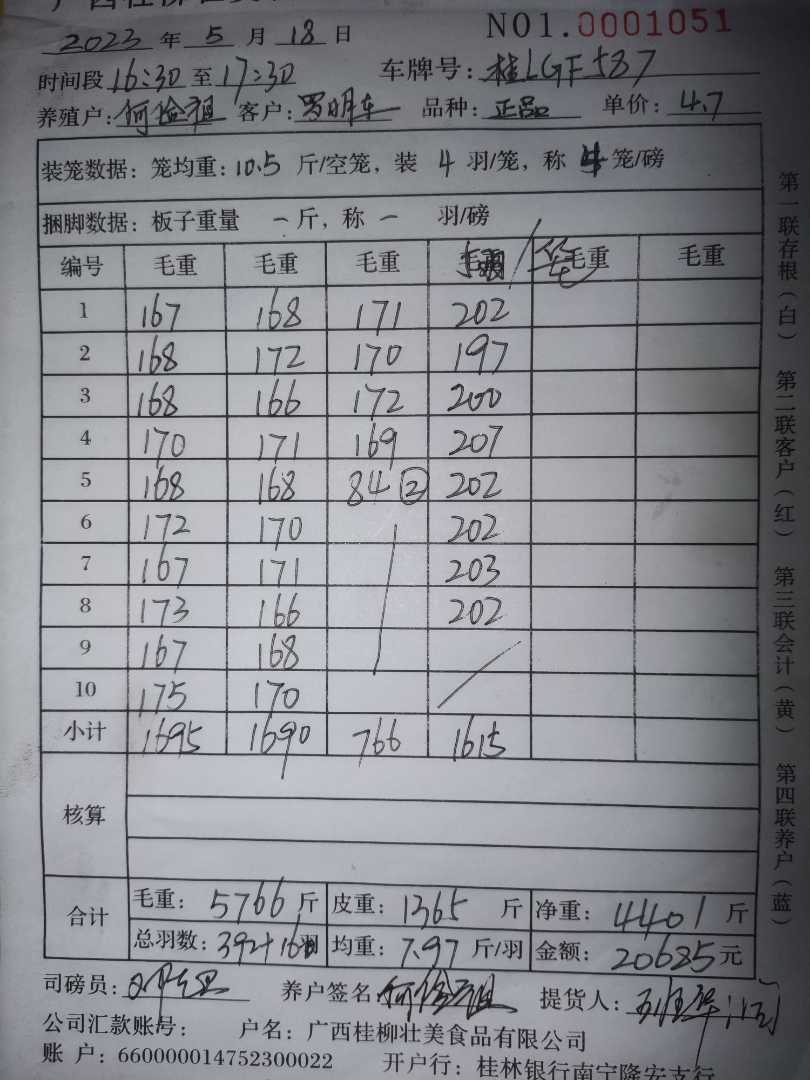 NO1.0001051
2023 年 5 月 18 日
时间段 16:30 至 17:30 车牌号: 桂LGF587
养殖户: 何俭祖 客户: 罗明车 品种: 正品 单价: 4.7
装笼数据: 笼均重: 10.5 斤/空笼, 装 4 羽/笼, 称 4 笼/磅
捆脚数据: 板子重量 一斤, 称 一 羽/磅
编号 毛重 毛重 毛重 毛重 毛重
1 167 168 171 202
2 168 172 170 197
3 168 166 172 200
4 170 171 169 207
5 168 168 84 ② 202
6 172 170 202
7 167 171 203
8 173 166 202
9 167 168
10 175 170
小计 1695 1690 766 1615
核算
合计
毛重: 5766 斤 皮重: 1365 斤 净重: 4401 斤
总羽数: 392+16羽 均重: 7.97 斤/羽 金额: 20685 元
司磅员: 养户签名: 何俭祖 提货人:
公司汇款账号: 户名: 广西桂柳壮美食品有限公司
账 户: 660000014752300022 开户行: 桂林银行南宁隆安支行
第一联存根(白) 第二联客户(红) 第三联会计(黄) 第四联养户(蓝)